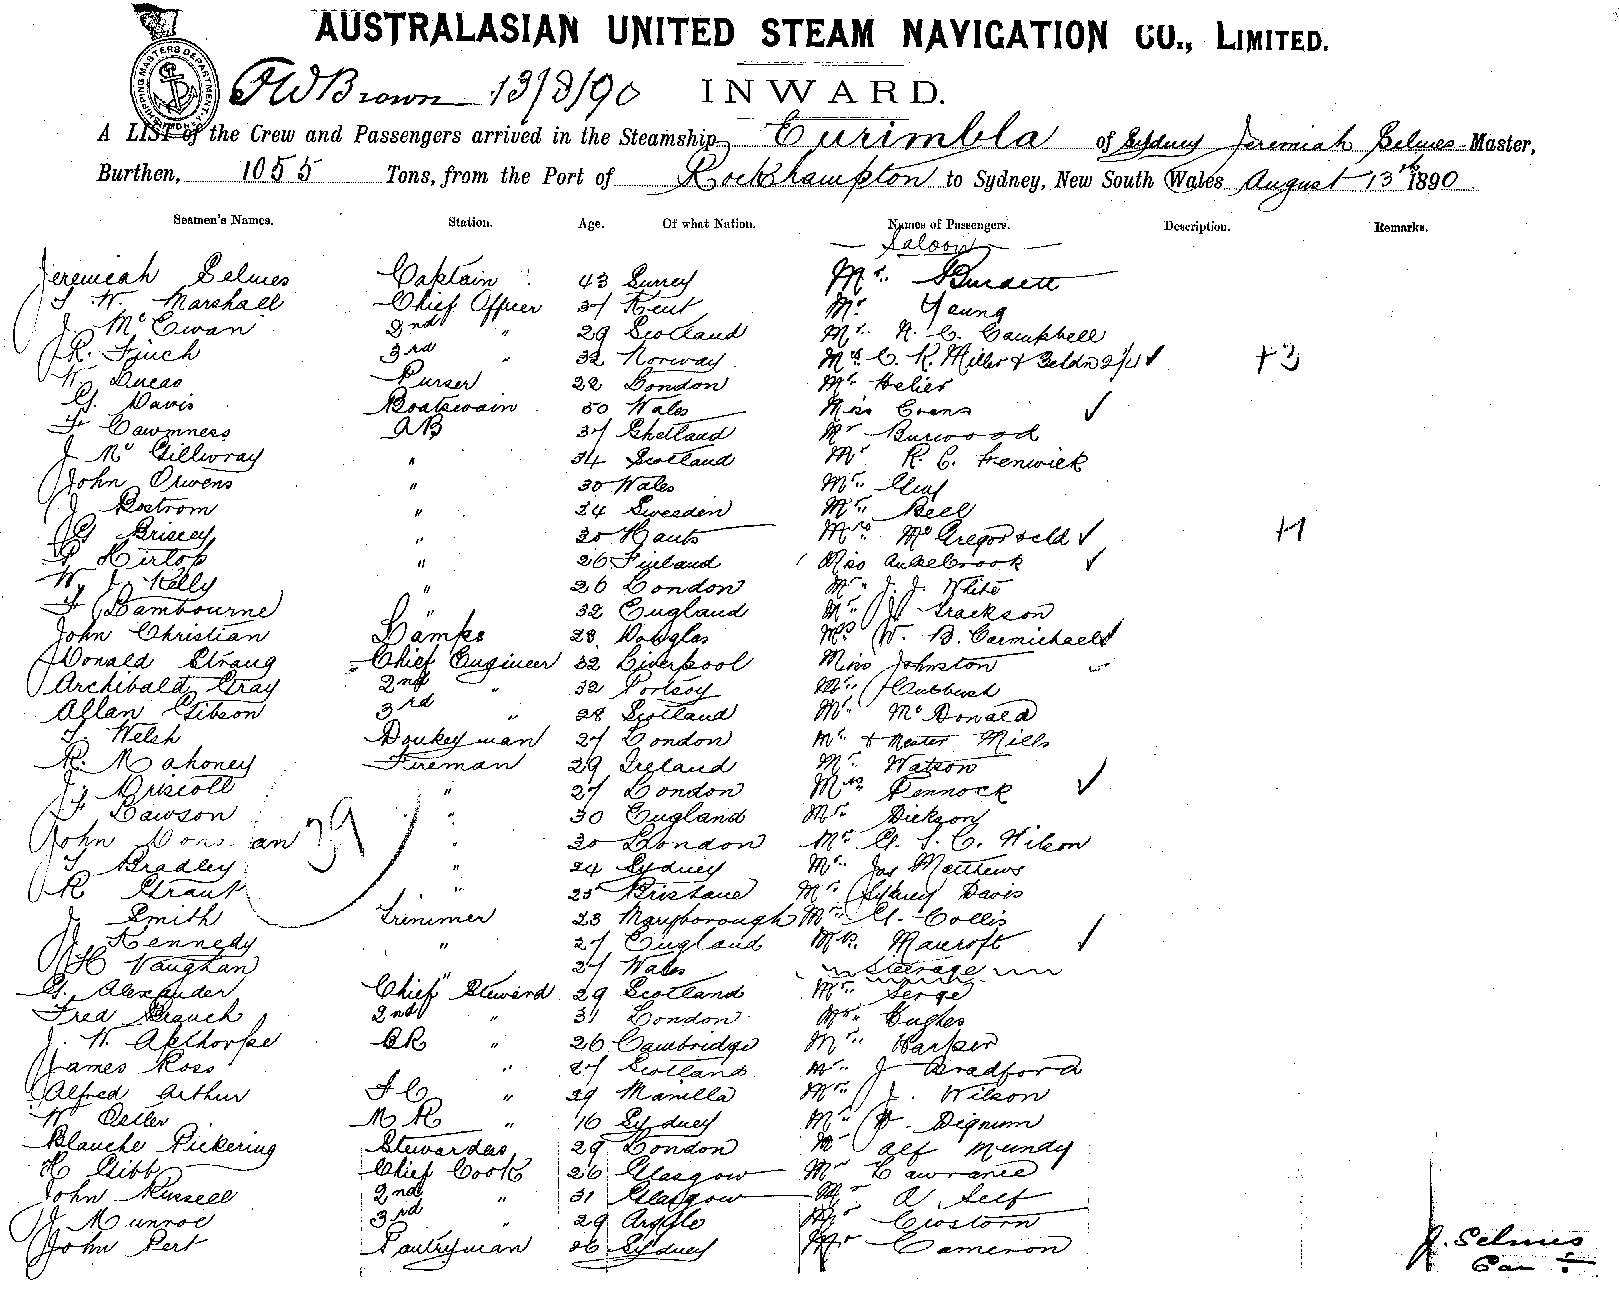 AUSTRALASIAN UNITED STEAM NAVIGATION CO., LIMITED.
SHIPPING MASTERS DEPARTMENT
F W Brown 13/8/90 INWARD.
A LIST of the Crew and Passengers arrived in the Steamship Eurimbla of Sydney Jeremiah Selmes Master,
Burthen, 1055 Tons, from the Port of Rockhampton to Sydney, New South Wales August 13th 1890
Seamen's Names. Station. Age. Of what Nation. Names of Passengers. Description. Remarks.
Saloon
Jeremiah Selmes Captain 43 Surrey Mr. Burdett
W. Marshall Chief Officer 37 Kent Mr. Young
J. McEwan 2nd " 29 Scotland Mr. C. Campbell
R. Finch 3rd " 32 Norway Mrs C. R. Miller & +3
W. Lucas Purser 22 London Mr. Helier
G. Davis Boatswain 50 Wales Miss Evans
Cawmness AB 37 Shetland Mr Burwood
J McGillivray " 34 Scotland Mr R. C. Fenwick
John Orwens " 30 Wales Mr.
J. Bostrom " 24 Sweden Mr. Bell
G Briscey " 20 Hants Mrs McGregor & cld +1
Hirlop " 26 Finland Miss Ankelbrook
W. J. Kelly " 26 London Mr. J. J. White
F Lambourne " 32 England Mr. J. Jackson
John Christian Lamps 28 Douglas Mrs W. B. Carmichael
Donald Strang Chief Engineer 32 Liverpool Miss Johnston
Archibald Gray 2nd " 32 Portsoy Mr. Cubbush
Allan Gibson 3rd " 28 Scotland Mr. McDonald
Welsh Donkeyman 27 London Mr. & Master Mills
R. Mahoney Fireman 29 Ireland Mr. Watson
J. Driscoll " 27 London Mrs Pennock
F Lawson " 30 England Mr. Dickson
John 39 " 20 London Mr. G. S. C. Wilson
T Bradley " 24 Sydney Mr. Jas Matthews
R Grant " 25 Brisbane Mr. Sydney Davis
J. Smith Trimmer 23 Maryborough Mr. G. Collis
J. Kennedy " 27 England Mrs. Maucroft
H Vaughan " 27 Wales Steerage
G. Alexander Chief Steward 29 Scotland Mr. Serge
Fred Branch 2nd " 31 London Mr. Hughes
J. W. Apthorpe BR " 26 Cambridge Mr. Harper
James Ross " 27 Scotland Mr. J Bradford
Alfred Arthur FC " 29 Manilla Mr. J. Wilson
W Oeller MR " 16 Sydney Mr. Dignum
Blanche Pickering Stewardess 29 London Mr Alf Mundy
H Gibb Chief Cook 26 Glasgow Mr Lawrance
John Russell 2nd " 31 Glasgow Mr A Self
J Munroe 3rd " 29 Argyle Mr Crostorn
John Pert Pantryman 26 Sydney Mr Cameron
J. Selmes